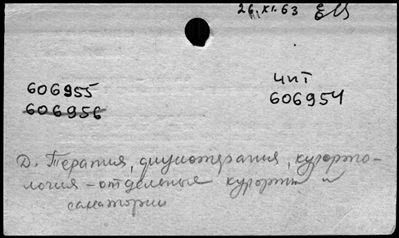 26.XI.63 ЕИ
606955
606956
ЧИТ
606954
Д. Терапия, физиотерапия, курорто-
логия - отдельные курорты и
санатории